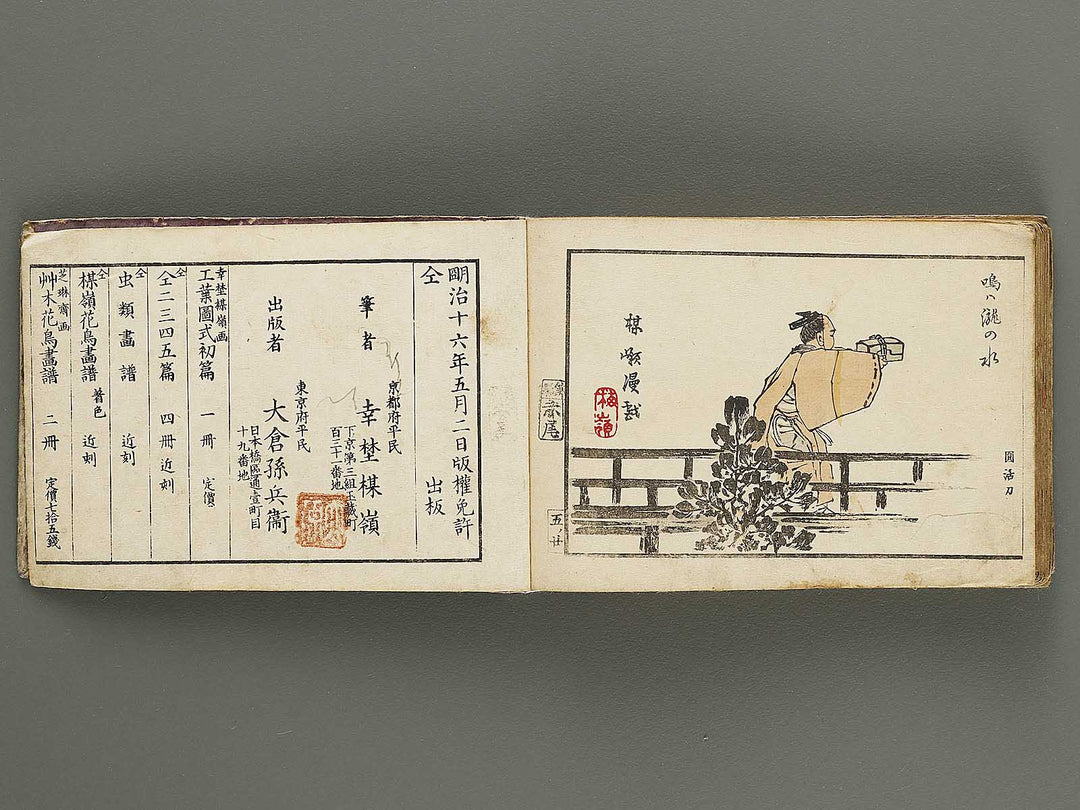 鳴ハ瀧の水
圓活刀
楳嶺漫戯
梅嶺
五ノ廿
明治十六年五月二日版權免許
仝 出板
筆者
京都府平民
下京第三組玉蔵町
百三十一番地
幸埜楳嶺
東京府平民
出版者
大倉孫兵衞
日本橋區通壹町目
十九番地
幸埜楳嶺画
工業圖式初篇 一冊 定價
仝
仝二三四五篇 四冊近刻
仝
虫類畫譜 近刻
仝
楳嶺花鳥畫譜 著色 近刻
芝琳齋画
艸木花鳥畫譜 二冊 定價七拾五錢